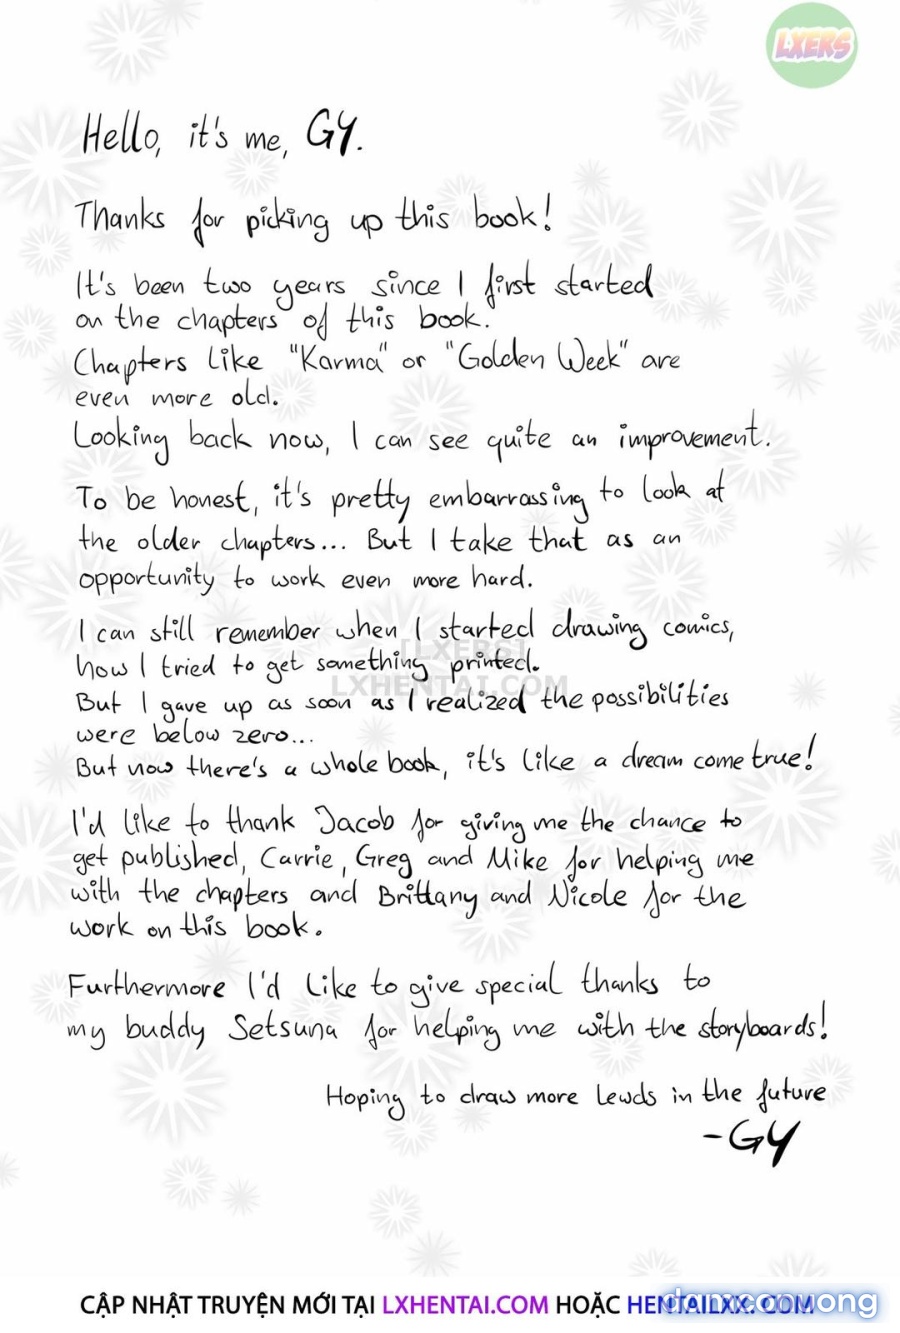 LXERS
Hello, it's me, GY.
Thanks for picking up this book!
It's been two years since I first started
on the chapters of this book.
Chapters like "Karma" or "Golden Week" are
even more old.
Looking back now, I can see quite an improvement.
To be honest, it's pretty embarrassing to look at
the older chapters... But I take that as an
opportunity to work even more hard.
I can still remember when I started drawing comics,
how I tried to get something printed.
[LXERS]
LXHENTAI.COM
But I gave up as soon as I realized the possibilities
were below zero...
But now there's a whole book, it's like a dream come true!
I'd like to thank Jacob for giving me the chance to
get published, Carrie, Greg and Mike for helping me
with the chapters and Brittany and Nicole for the
work on this book.
Furthermore I'd like to give special thanks to
my buddy Setsuna for helping me with the storyboards!
Hoping to draw more lewds in the future
-GY
CẬP NHẬT TRUYỆN MỚI TẠI LXHENTAI.COM HOẶC HENTAILXX.COM
damconuong